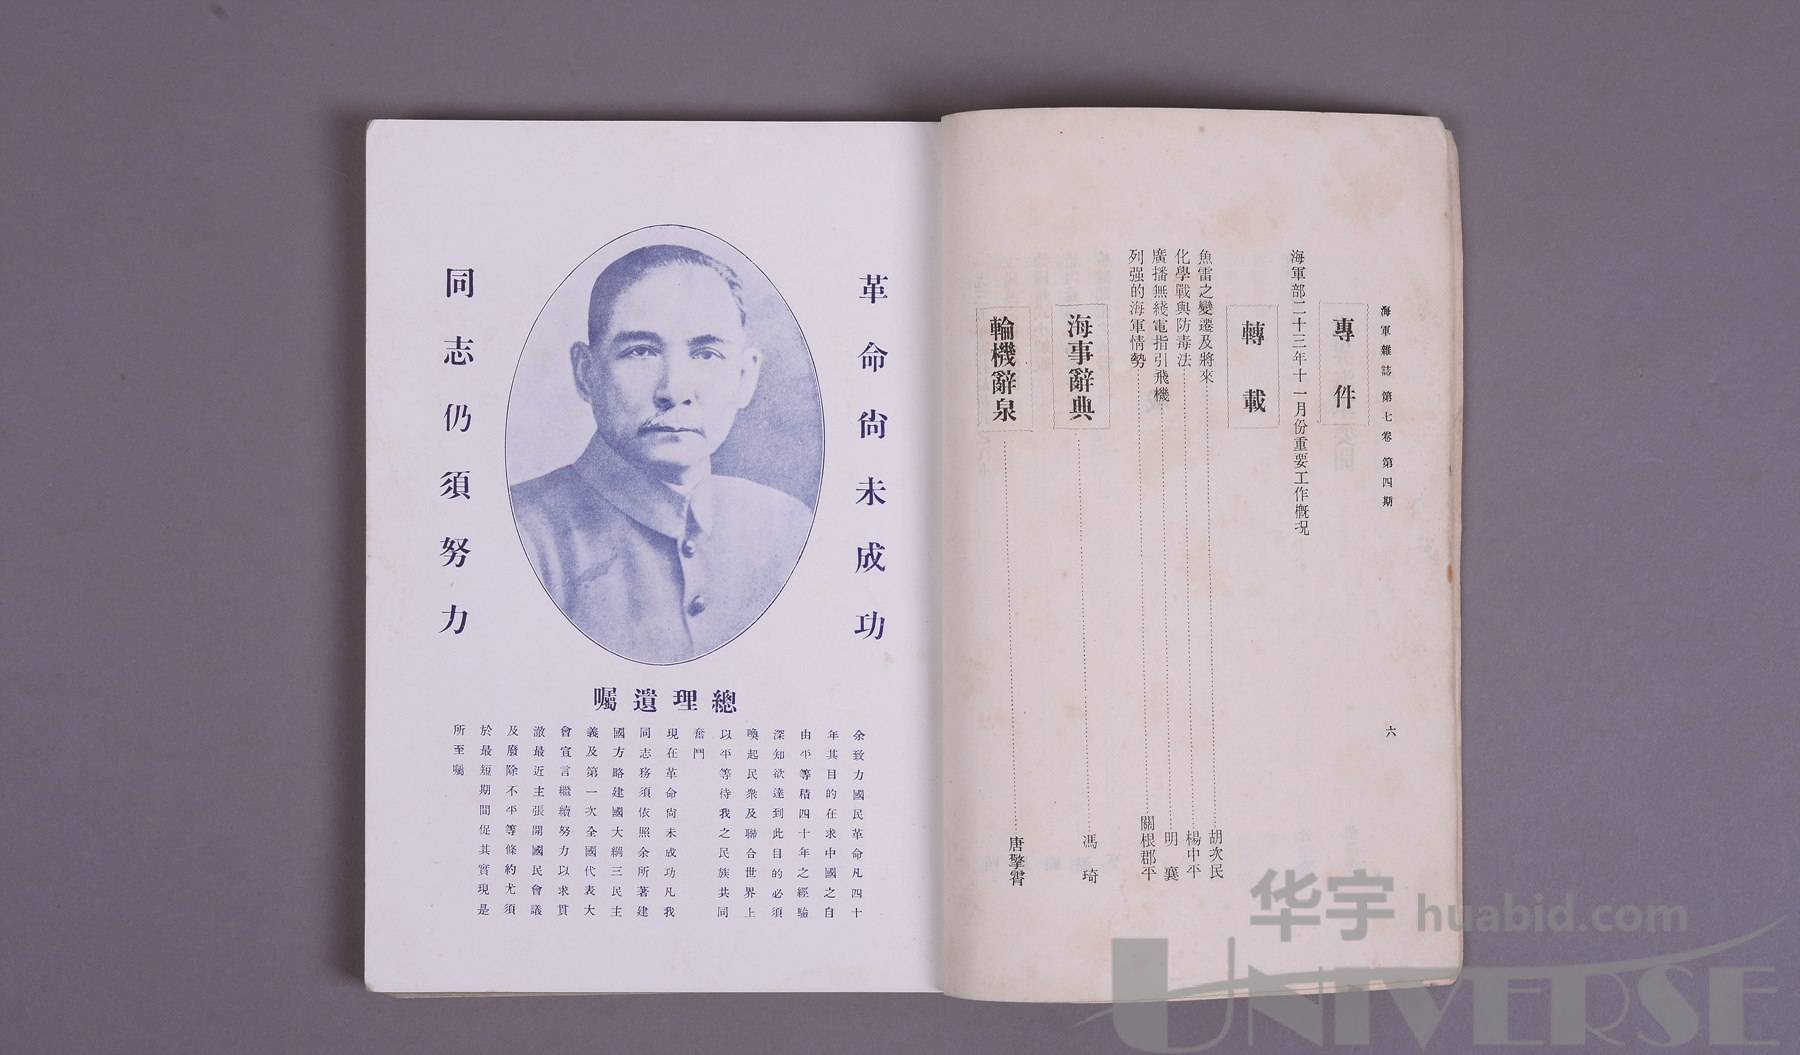 海軍雜誌 第七卷 第四期
六
專件
海軍部二十三年十一月份重要工作概況
轉載
魚雷之變遷及將來 胡次民
化學戰與防毒法 楊中平
廣播無綫電指引飛機 明襄
列强的海軍情勢 關根郡平
海事辭典 馮琦
輪機辭泉 唐擎霄
革命尙未成功
同志仍須努力
總理遺囑
余致力國民革命凡四十
年其目的在求中國之自
由平等積四十年之經驗
深知欲達到此目的必須
喚起民衆及聯合世界上
以平等待我之民族共同
奮鬥
現在革命尙未成功凡我
同志務須依照余所著建
國方略建國大綱三民主
義及第一次全國代表大
會宣言繼續努力以求貫
澈最近主張開國民會議
及廢除不平等條約尤須
於最短期間促其實現是
所至囑
华宇 huabid.com
UNIVERSE